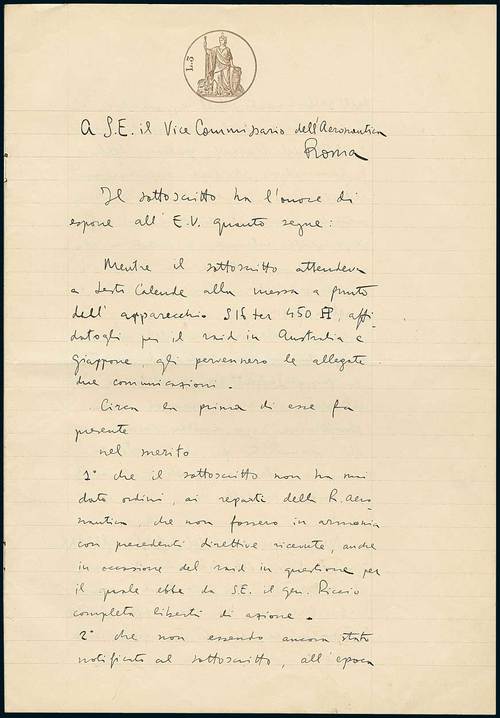 L.3
A S.E. il Vice Commissario dell'Aeronautica
Roma
Il sottoscritto ha l'onore di
esporre all'E.V. quanto segue:
Mentre il sottoscritto attendeva
a Sesto Calende alla messa a punto
dell'apparecchio S 16 ter 450 HP, affi
datogli per il raid in Australia e
Giappone, gli pervennero le allegate
due comunicazioni.
Circa la prima di esse fa
presente
nel merito
1° che il sottoscritto non ha mai
dato ordini, ai reparti della R. Aero
nautica, che non fossero in armonia
con precedenti direttive ricevute, anche
in occasione del raid in questione per
il quale ebbe da S.E. il gen. Riccio
completa libertà di azione.
2° che non essendo ancora stato
notificato al sottoscritto, all'epoca